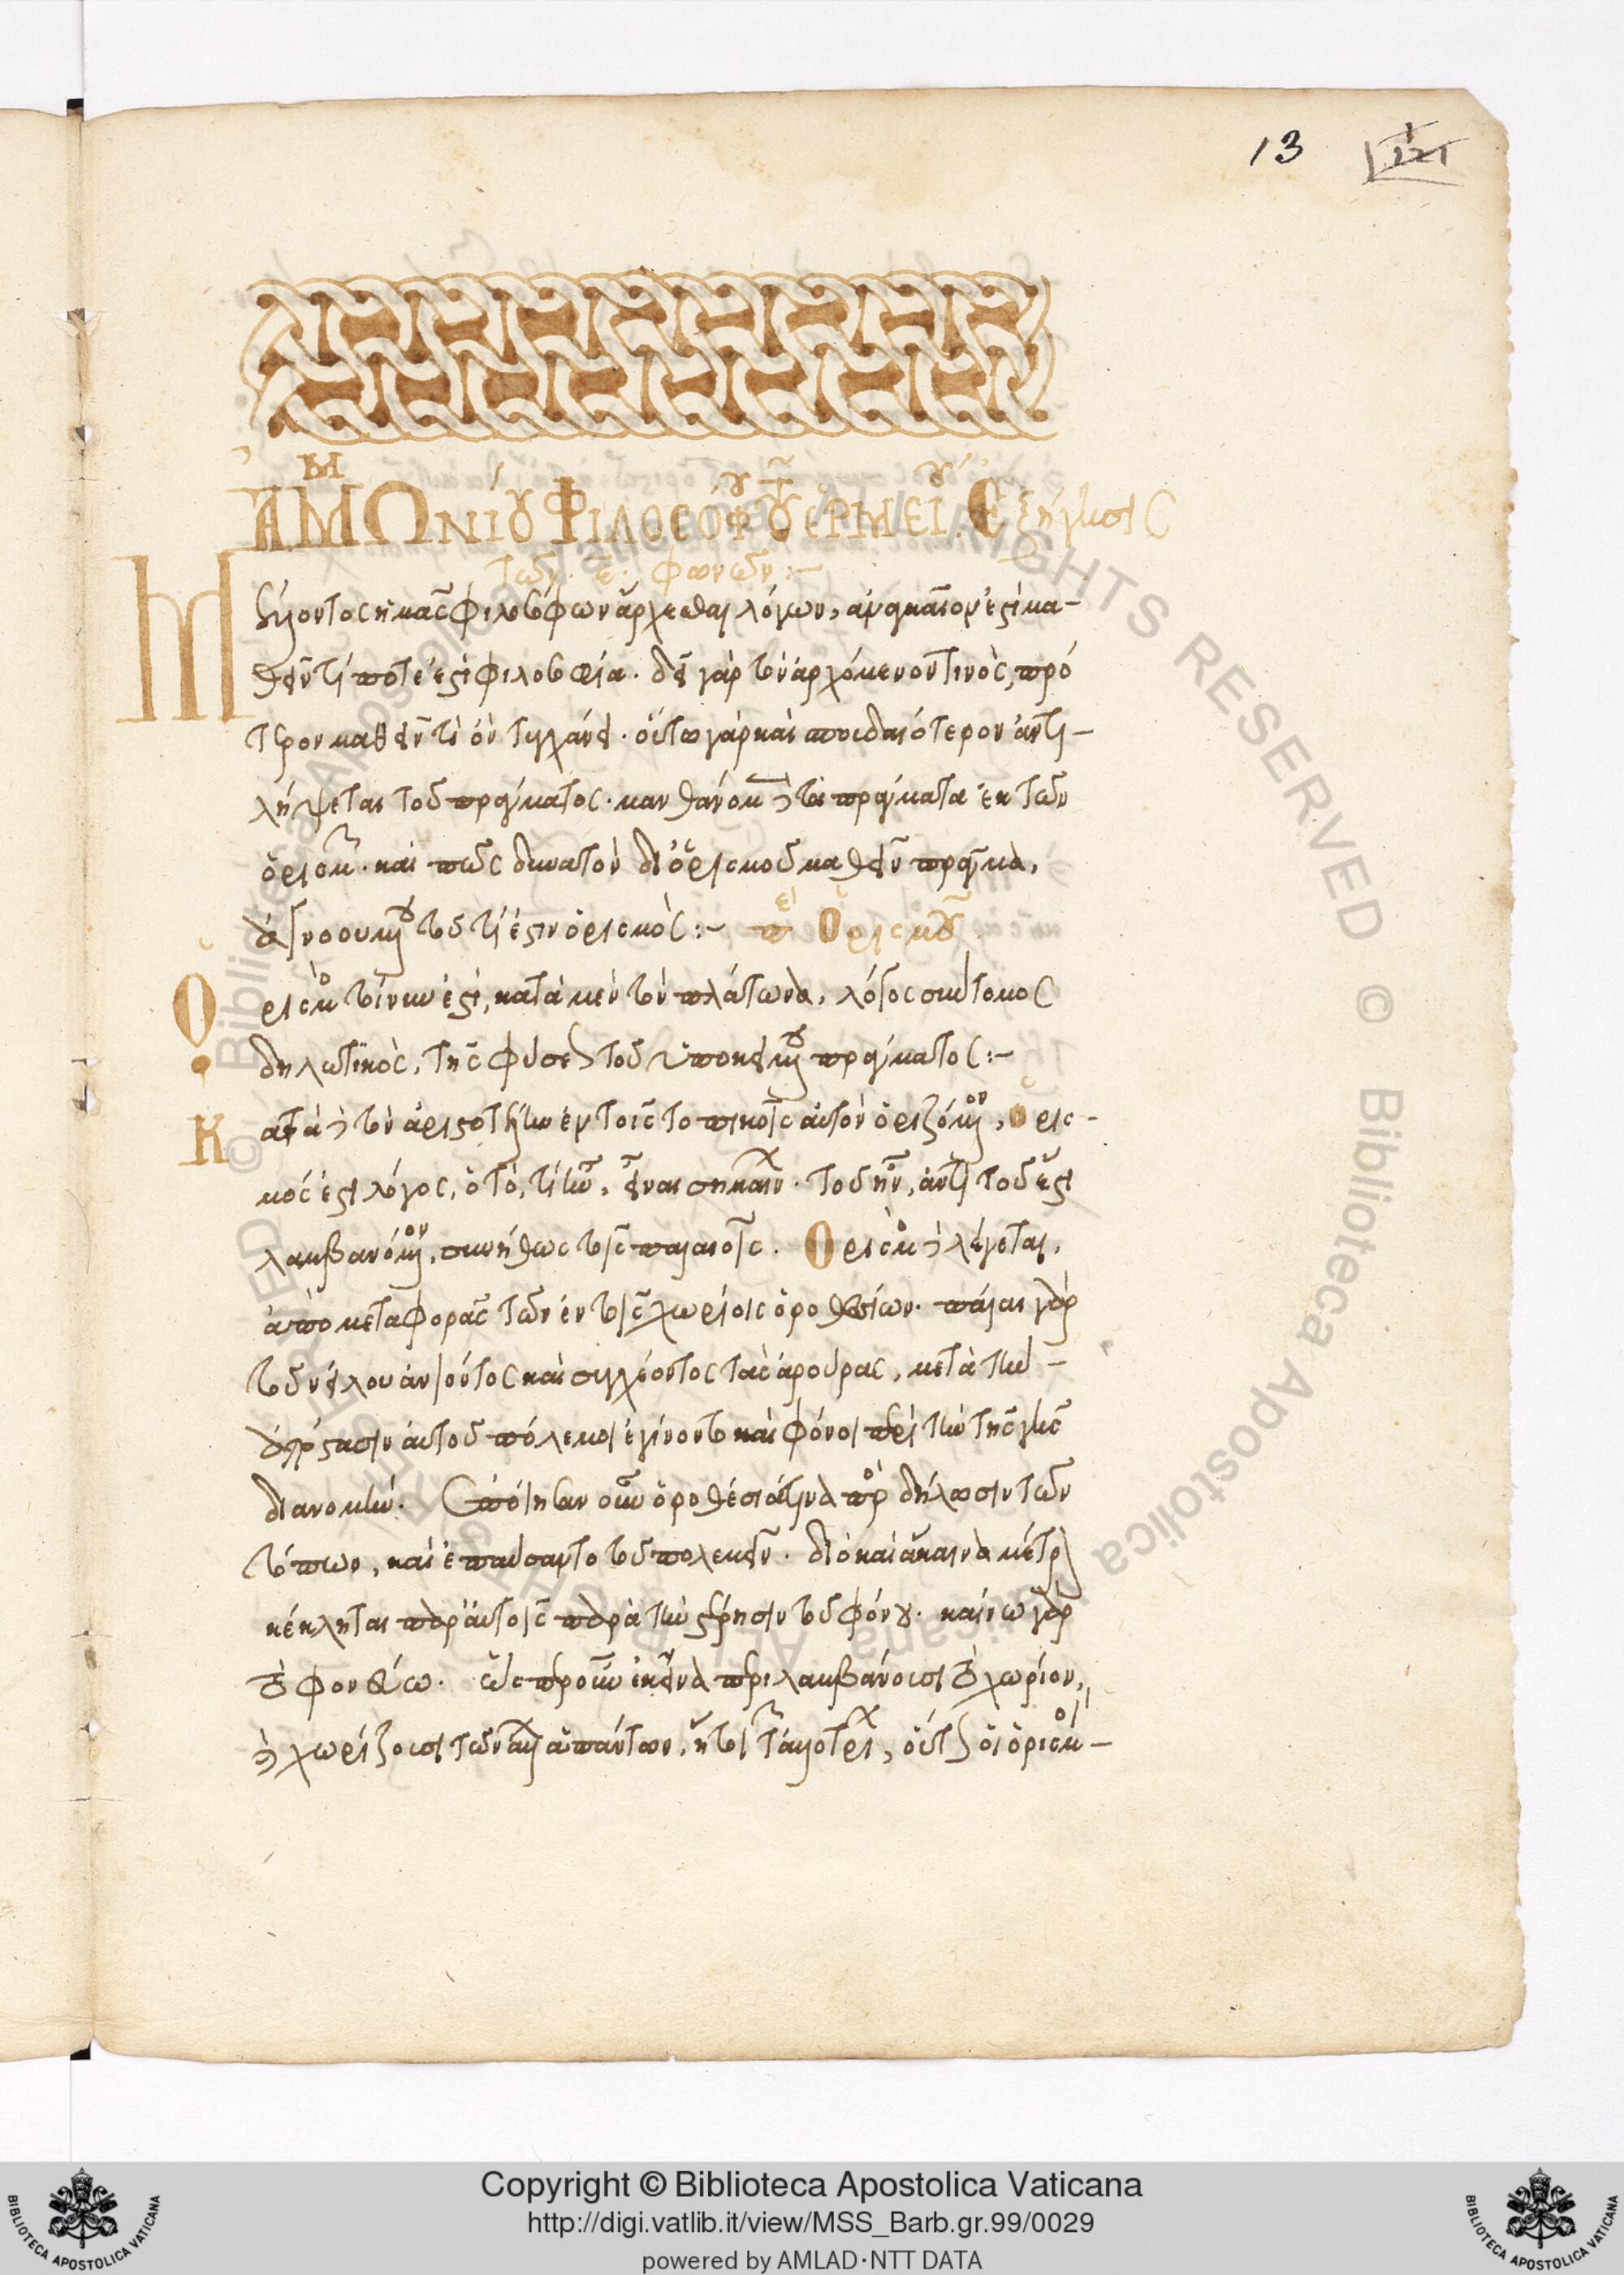 13
ἈΜΜΩΝΊΟΥ ΦΙΛΟΣΌΦΟΥ ΤΟΥ ἙΡΜΕΊΟΥ Ἐξήγησις
τῶν ε φωνῶν :–
Μέλλοντος ἡμᾶς φιλοσόφων ἄρχεσθαι λόγων, ἀναγκαῖον ἐστὶ μα–
θεῖν τί ποτέ ἐστι φιλοσοφία. δεῖ γὰρ τὸν ἀρχόμενον τινὸς, πρό
τερον μαθεῖν τὶ ὂν τυγχάνει. οὕτω γὰρ καὶ σπουδαιότερον ἀντι–
λήψεται τοῦ πράγματος. μανθάνομεν δὲ τὰ πράγματα ἐκ τῶν
ὁρισμῶν. καὶ πῶς δυνατὸν δι' ὁρισμοῦ μαθεῖν πρᾶγμα,
ἀγνοουμένου τοῦ τί ἐστιν ὁρισμός :– περὶ Ὁρισμοῦ.
Ὁρισμὸς τοίνυν ἐστὶ, κατὰ μὲν τὸν πλάτωνα, λόγος σύντομος
δηλωτικὸς, τῆς φύσεως τοῦ ὑποκειμένου πράγματος :–
Κατὰ δὲ τὸν ἀριστοτέλην ἐν τοῖς τοπικοῖς αὐτὸν ὁριζόμενον, ὁρις–
μός ἐστι λόγος, ὁ τὸ, τί ἦν, εἶναι σημαίνων. τοῦ ἦν, ἀντὶ τοῦ ἔστι
λαμβανόμενον, συνήθως τοῖς παλαιοῖς. Ὁρισμὸς δὲ λέγεται,
ἀπὸ μεταφορᾶς τῶν ἐν τοῖς χωρίοις ὁροθεσίων. πάλαι γὰρ
τοῦ νείλου ἀνιόντος καὶ συγχέοντος τὰς ἀρούρας, μετὰ τὴν –
ἀπόστασιν αὐτοῦ πόλεμοι ἐγίνοντο καὶ φόνοι περὶ τὴν τῆς γῆς
διανομήν. Ἐπόιησαν οὖν ὁροθέσιά τινα πρὸς δήλωσιν τῶν
τόπων, καὶ ἐπαύσαντο τοῦ πολεμεῖν. διὸ καὶ ἄκαινα μέτρον
κέκληται παρ' αὐτοῖς παρὰ τὴν στέρησιν τοῦ φόνου. καίνω γὰρ
τὸ φονεύω. ὥσπερ οὖν ἐκεῖνα περιλαμβάνουσι τὸ χωρίον,
καὶ χωρίζουσι τῶν ἄλλων ἁπάντων, ἤτοι τῶν ἀλλοτρίων, οὕτως οἱ ὁρισμοὶ –
Copyright © Biblioteca Apostolica Vaticana
http://digi.vatlib.it/view/MSS_Barb.gr.99/0029
powered by AMLAD·NTT DATA